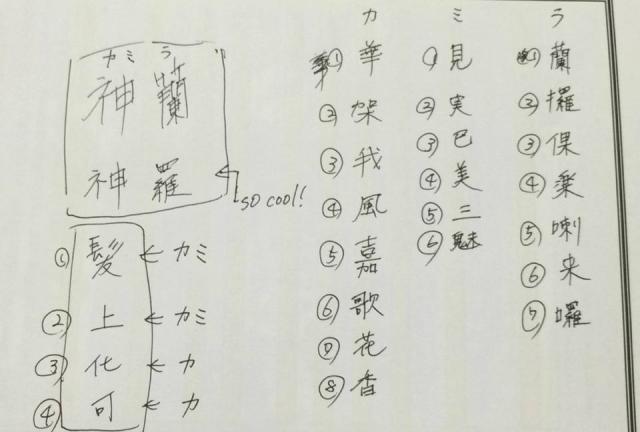 カミ ラ
神 蘭
神 羅
so cool!
① 髪 ← カミ
② 上 ← カミ
③ 化 ← カ
④ 可 ← カ
カ
① 華
② 架
③ 我
④ 風
⑤ 嘉
⑥ 歌
⑦ 花
⑧ 香
ミ
① 見
② 実
③ 巴
④ 美
⑤ 三
⑥ 魅
ラ
① 蘭
② 攞
③ 倮
⑤ 喇
⑥ 来
⑦ 囉